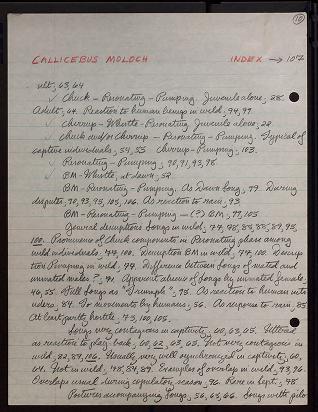 10
CALLICEBUS MOLOCH INDEX → 1072
ult, 63, 64
✓ Chuck - Resonating - Pumping. Juvenile alone, 28.
Adult, 64. Reaction to human being in wild, 94, 97.
✓ Chirrup - Whistle - Resonating Juvenile alone, 28
✓ Chuck and/or Chirrup - Resonating - Pumping. Typical of
captive individuals, 54, 55 Chirrup - Pumping, 103.
✓ Resonating - Pumping, 90, 91, 93, 98
✓ BM - Whistle, at dawn, 52.
BM - Resonating - Pumping. As Dawn Song, 79. During
disputes, 90, 93, 95, 105, 106. As reaction to rain, 93
BM - Resonating - Pumping - (?) BM, 99, 105
General descriptions Songs in wild, 77, 78, 85, 88, 89, 93,
100. Prominence of Chuck components in Resonating phase among
wild individuals, 77, 100. Description BM in wild, 77, 100. Descrip
tion Pumping in wild, 77. Difference between Songs of mated and
unmated males?, 91. Apparent absence of Songs by unmated female,
46, 55. Still Songs as "Triumph", 95. As reaction to human intr
uders, 84. To movements by humans, 56. As response to rain, 85
At least partly hostile, 73, 100, 105.
Songs very contagious in captivity, 60, 63, 65. Uttered
as reaction to play-back, 60, 62, 63, 65. Not very contagious in
wild, 82, 84, 106. Usually very well synchronized in captivity, 60,
64. Not in wild, 78, 84, 89. Examples of overlap in wild, 93, 96.
Overlaps usual during copulatory season, 96. Rare in Sept., 78
Postures accompanying Songs, 56, 63, 66. Songs with pilo